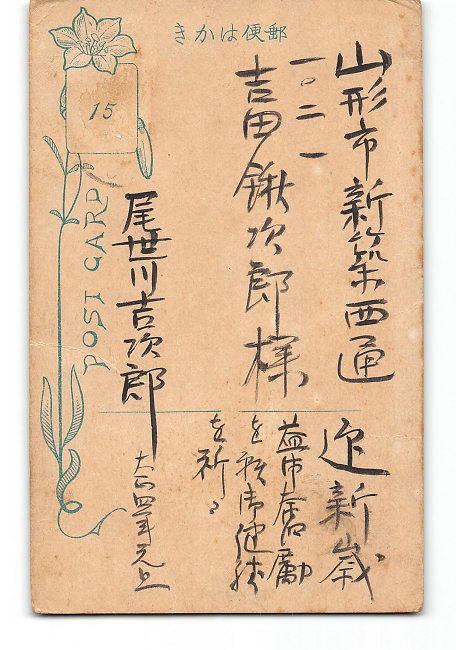 郵便はかき
山形市新築西通
一〇二一
吉田鍬次郎様
迎新歳
奮励
御健勝
を祈る
尾世川吉次郎
大正四年元旦
15
POST CARD